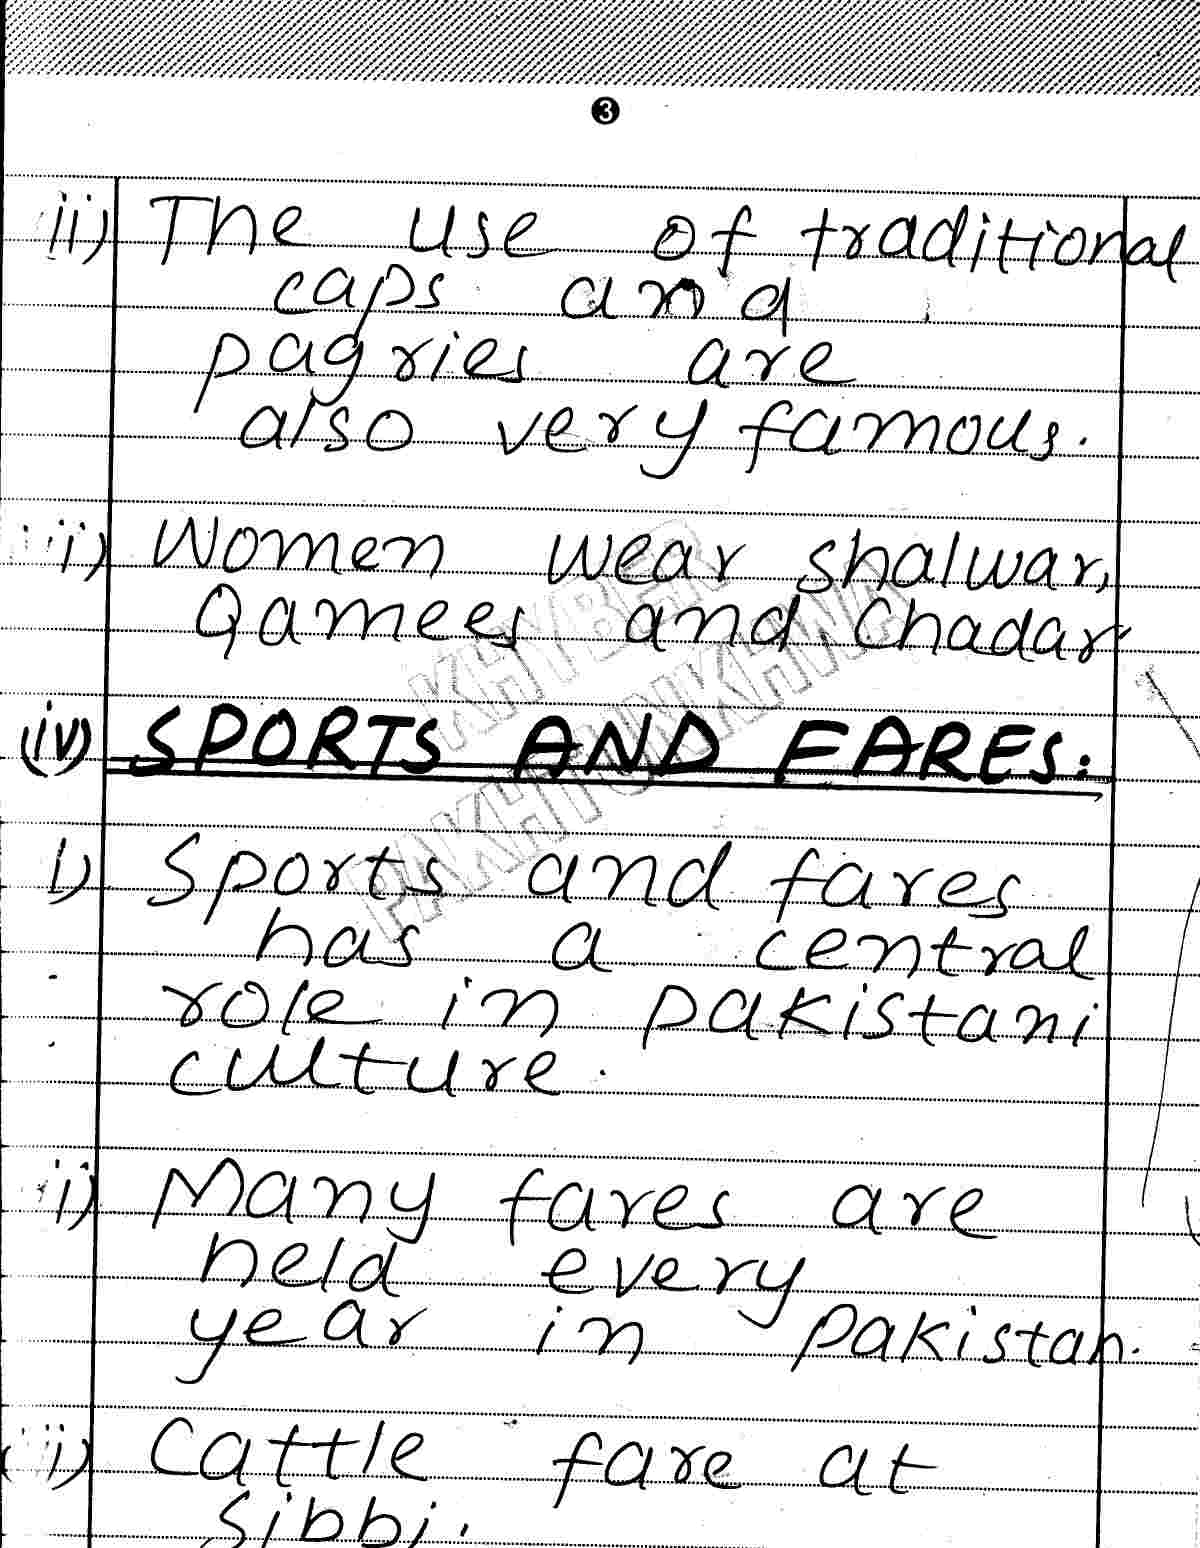 3
ii) The use of traditional
caps and
pagries are
also very famous.
iii) Women wear shalwar,
Qamees and Chadar
KHYBER
PAKHTUNKHWA
(iv) SPORTS AND FARES:
i) Sports and fares
has a central
role in pakistani
culture.
ii) Many fares are
held every
year in pakistan.
iii) Cattle fare at
Sibbi.